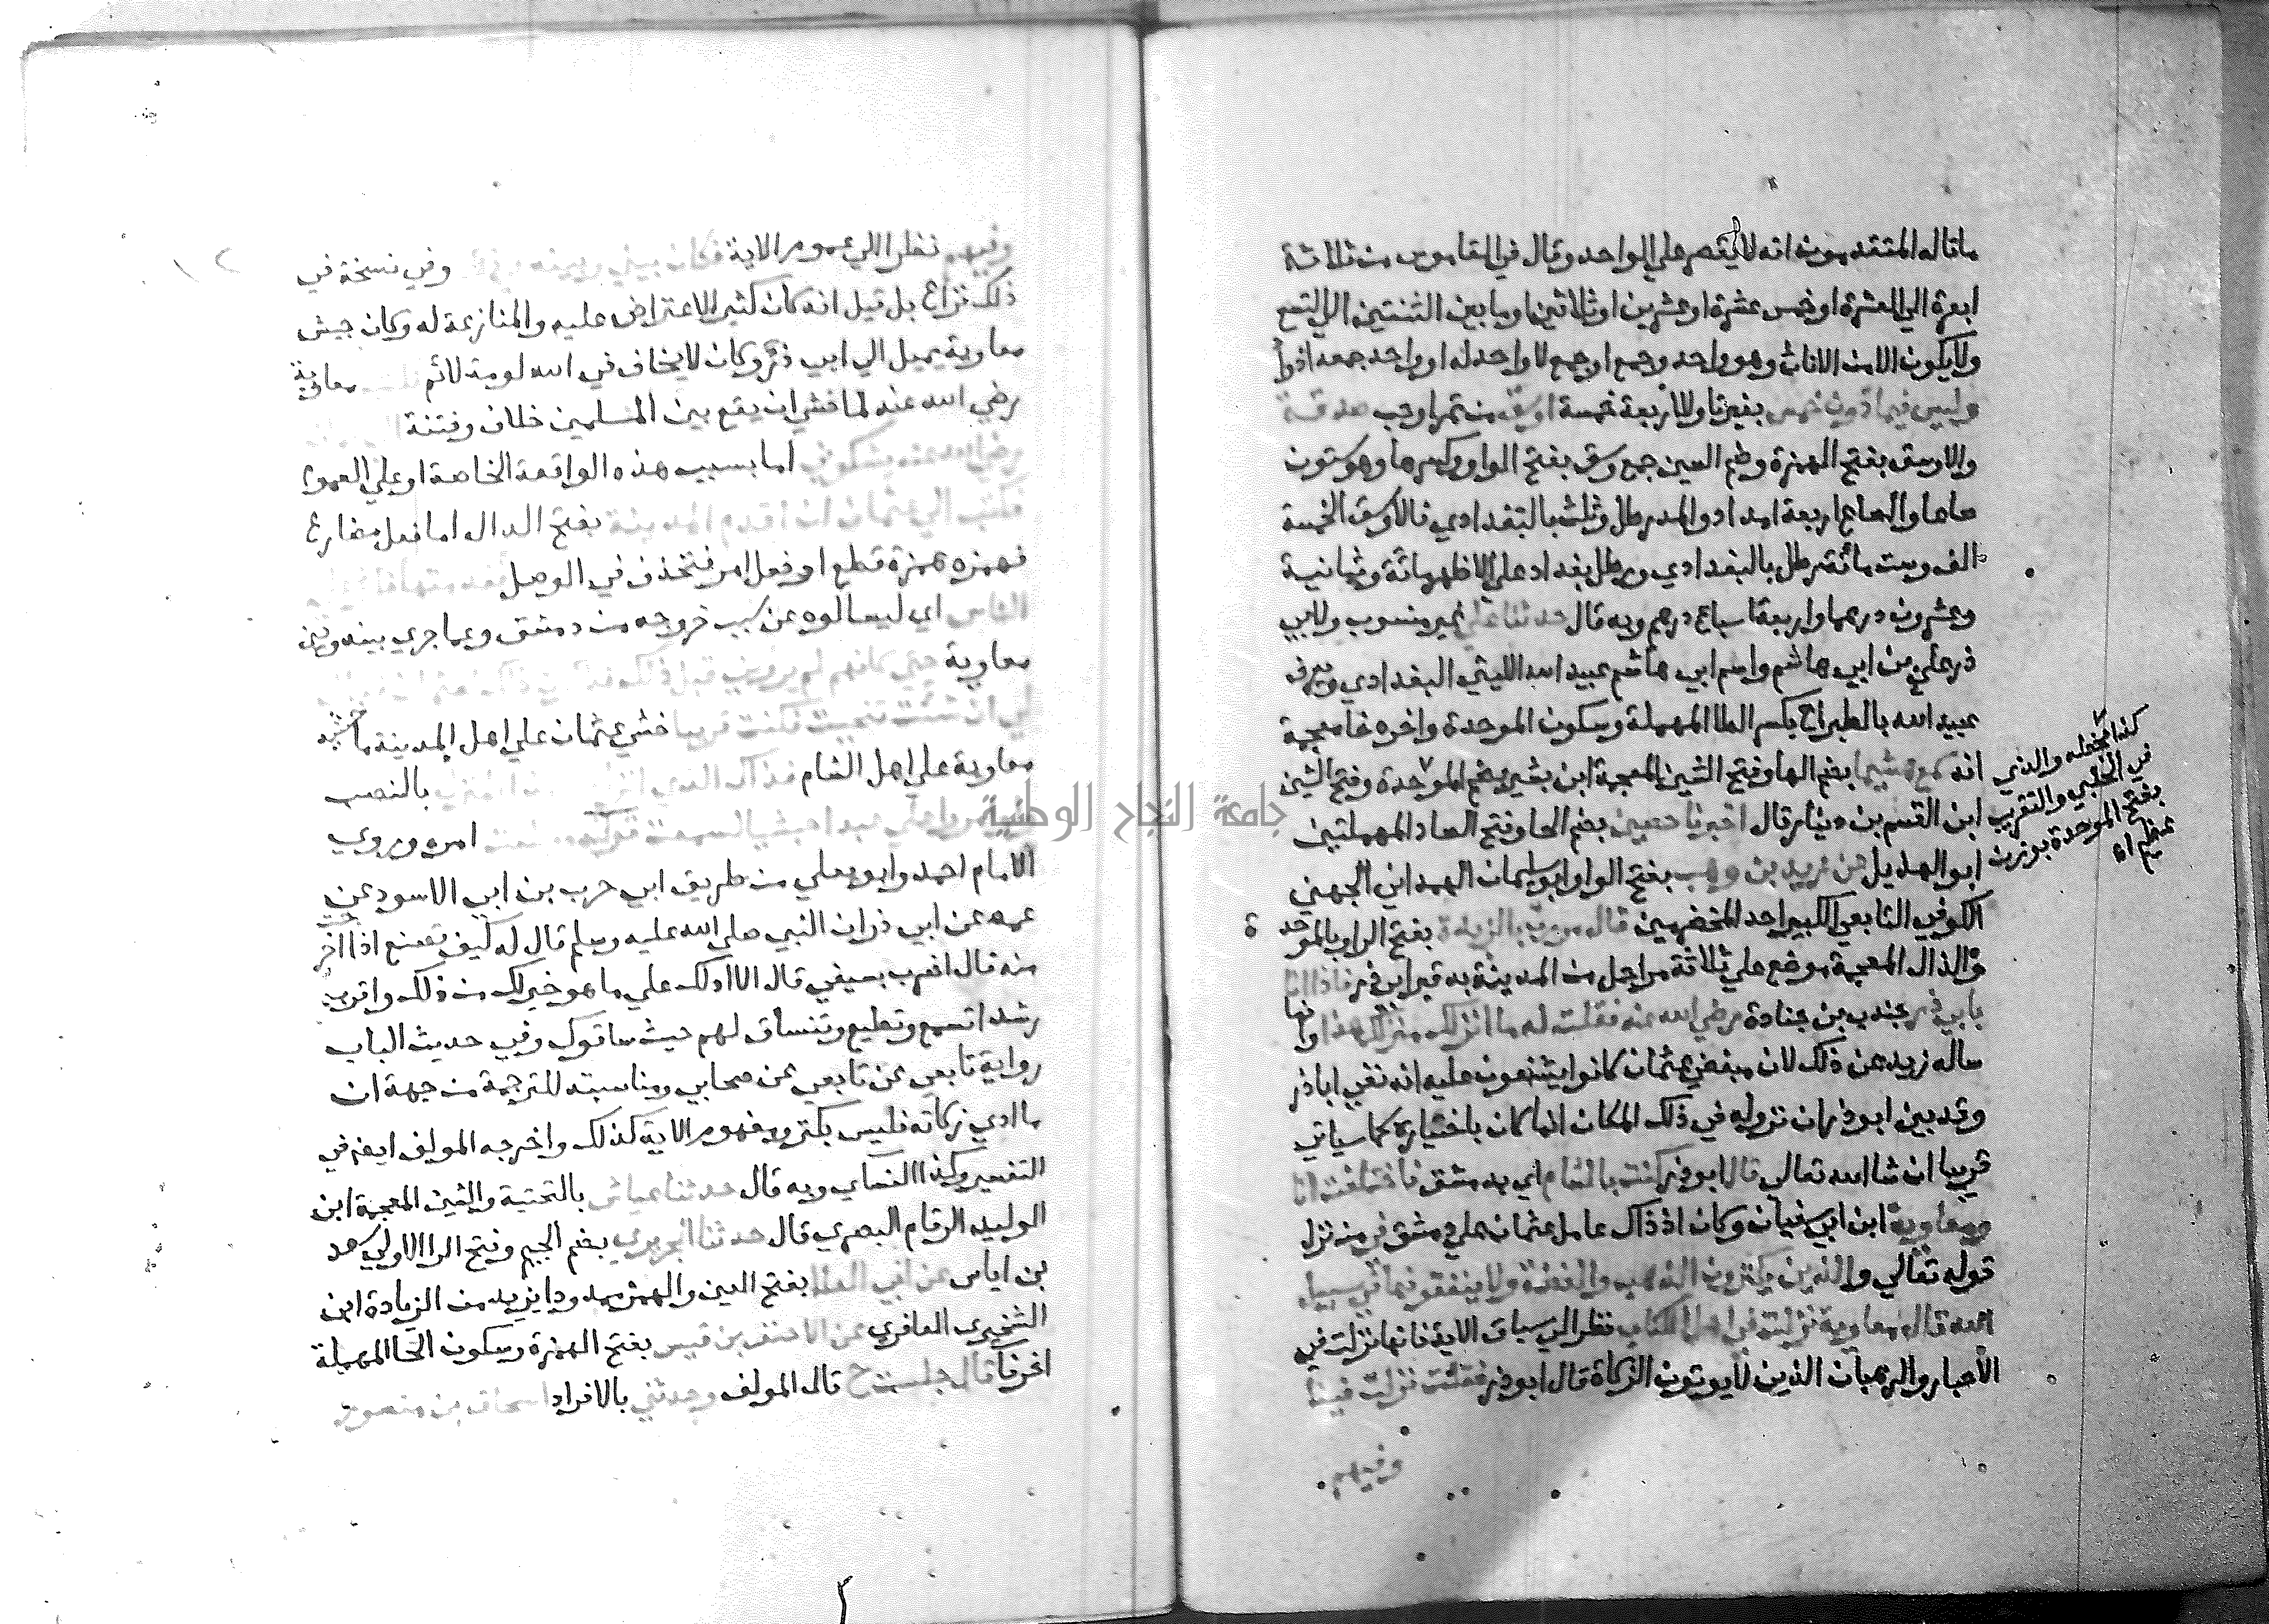 ما قاله المتقدمون انه لا يقصر علي الواحد وقال في القاموس من ثلاثة
ابعرة الي العشرة او خمس عشرة او عشرين او ثلاثين او ما بين الثنتين الي التسع
ولا يكون الا من الاناث وهو واحد وجمع او جمع لا واحد له او واحد جمعه اذواد
وليس فيما دون خمس بغير تا ولاربعة خمسة اوسق من تمر او حب صدقة
والاوسق بفتح الهمزة وضم السين جمع وسق بفتح الواو وكسرها وهو ستون
صاعا والصاع اربعة امداد والمد رطل وثلث بالبغدادي فالاوسق الخمسة
الف وست مائة رطل بالبغدادي ورطل بغداد علي الاظهر مائة وثمانية
وعشرون درهما واربعة اسباع درهم وبه قال حدثنا علي غير منسوب ولابي
ذر علي بن ابي هاشم واسم ابي هاشم عبيد الله الليثي البغدادي ويعرف
عبيد الله بالطبراخ بكسر الطا المهملة وسكون الموحدة واخره خا معجمة
انه سمع هشيما بضم الها وفتح الشين المعجمة ابن بشير بضم الموحدة وفتح الشين
ابن القسم بن دينار قال اخبرنا حصين بضم الحا وفتح الصاد المهملتين
ابو الهذيل عن زيد بن وهب بفتح الواو ابو سليمان الهمداني الجهني
الكوفي التابعي الكبير احد المخضرمين قال مررت بالربذة بفتح الرا وبالموحدة
والذال المعجمة موضع علي ثلاثة مراحل من المدينة به قبر ابي ذر فاذا انا
بابي ذر جندب بن جنادة رضي الله عنه فقلت له ما انزلك منزلك هذا وانما
ساله زيد عن ذلك لان مبغضي عثمان كانوا يشنعون عليه انه نفي ابا ذر
وقد بين ابو ذر ان نزوله في ذلك المكان انما كان باختياره كما سياتي
قريبا ان شا الله تعالي قال ابو ذر كنت بالشام اي بدمشق فاختلفت انا
ومعاوية ابن ابي سفيان وكان اذ ذاك عامل عثمان علي دمشق في من نزل
قوله تعالي والذين يكنزون الذهب والفضة ولا ينفقونها في سبيل
الله قال معاوية نزلت في اهل الكتاب نظرا الي سياق الاية فانها نزلت في
الاحبار والرهبان الذين لا يوتون الزكاة قال ابو ذر فقلت نزلت فينا
وفيهم
كذا بخطه والذي
في الحلبي والتقريب
بفتح الموحدة بوزن
عظيم اه
وفيهم نظرا الي عموم الاية فكان بيني وبينه في وفي نسخة في
ذلك نزاع بل قيل انه كان كثير الاعتراض عليه والمنازعة له وكان جيش
معاوية يميل الي ابي ذر وكان لا يخاف في الله لومة لائم معاوية
رضي الله عنه لما خشي ان يقع بين المسلمين خلاف وفتنة
رضي الله عنه يشكوني اما بسبب هذه الواقعة الخاصة او علي العموم
فكتب الي عثمان ان اقدم المدينة بفتح الدال اما فعل مضارع
فهمزه همزة قطع او فعل امر فتحذف في الوصل فقدمتها
الناس اي ليسالوه عن سبب خروجه من دمشق وعما جري بينه وبين
معاوية حتي كانهم لم يروني قبل ذلك
لي ان شئت تنحيت فكنت قريبا خشي عثمان علي اهل المدينة ما خشيه
معاوية علي اهل الشام فذاك الذي بالنصب
امروا علي عبدا حبشيا لسمعت امره وروي
الامام احمد وابو يعلي من طريق ابي حرب بن ابي الاسود عن
عمه عن ابي ذر ان النبي صلي الله عليه وسلم قال له كيف تصنع اذا اخرجت
منه قال اضرب بسيفي قال الا ادلك علي ما هو خير لك من ذلك واقرب
رشدا تسمع وتطيع وتنساق لهم حيث ساقوك وفي حديث الباب
رواية تابعي عن تابعي عن صحابي ومناسبته للترجمة من جهة ان
ما ادي زكاته فليس بكنز ومفهوم الاية كذلك واخرجه المولف ايضا في
التفسير وكذا النساي وبه قال حدثنا عياش بالتحتية والشين المعجمة ابن
الوليد الرقام البصري قال حدثنا الجريري بضم الجيم وفتح الرا الاولي سعيد
بن اياس عن ابي العلا بفتح العين والهمز ممدودا يزيد من الزيادة ابن
الشخير العامري عن الاحنف بن قيس بفتح الهمزة وسكون الحا المهملة
اخره فا قال جلست ح قال المولف وحدثني بالافراد اسحاق بن منصور
جامعة النجاح الوطنية